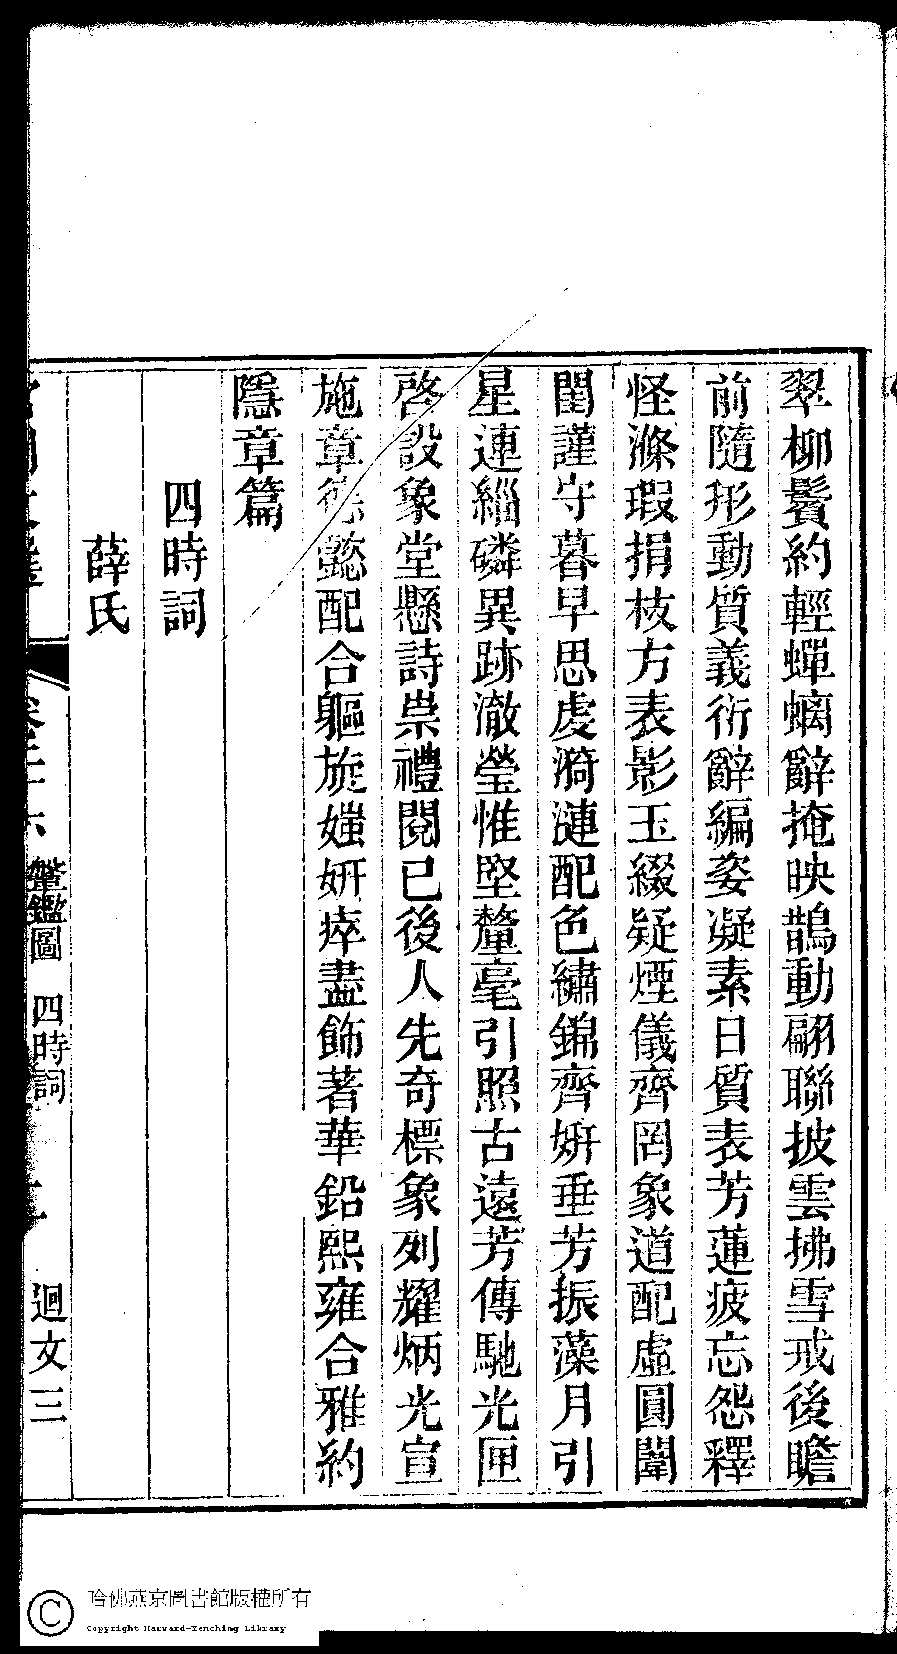 翠柳鬢約輕蟬螭辭掩映鵲動翩聯披雲拂雪戒後瞻
前隨形動質義衍辭編姿凝素日質表芳蓮疲忘怨釋
怪滌瑕捐枝方表影玉綴疑煙儀齊罔象道配虛圓闈
閨謹守暮早思虔漪漣配色繡錦齊妍垂芳振藻月引
星連緇磷異跡澈瑩惟堅釐毫引照古遠芳傳馳光匣
啓設象堂懸詩祟禮閱已後人先奇標象列耀炳光宣
施章德懿配合軀旋媸妍瘁盡飾著華鉛熙雍合雅約
隱章篇
四時詞
薛氏
卷二十六 鞶鑑圖 四時詞 迴文三
哈佛燕京圖書館版權所有
Copyright Harvard-Yenching Library